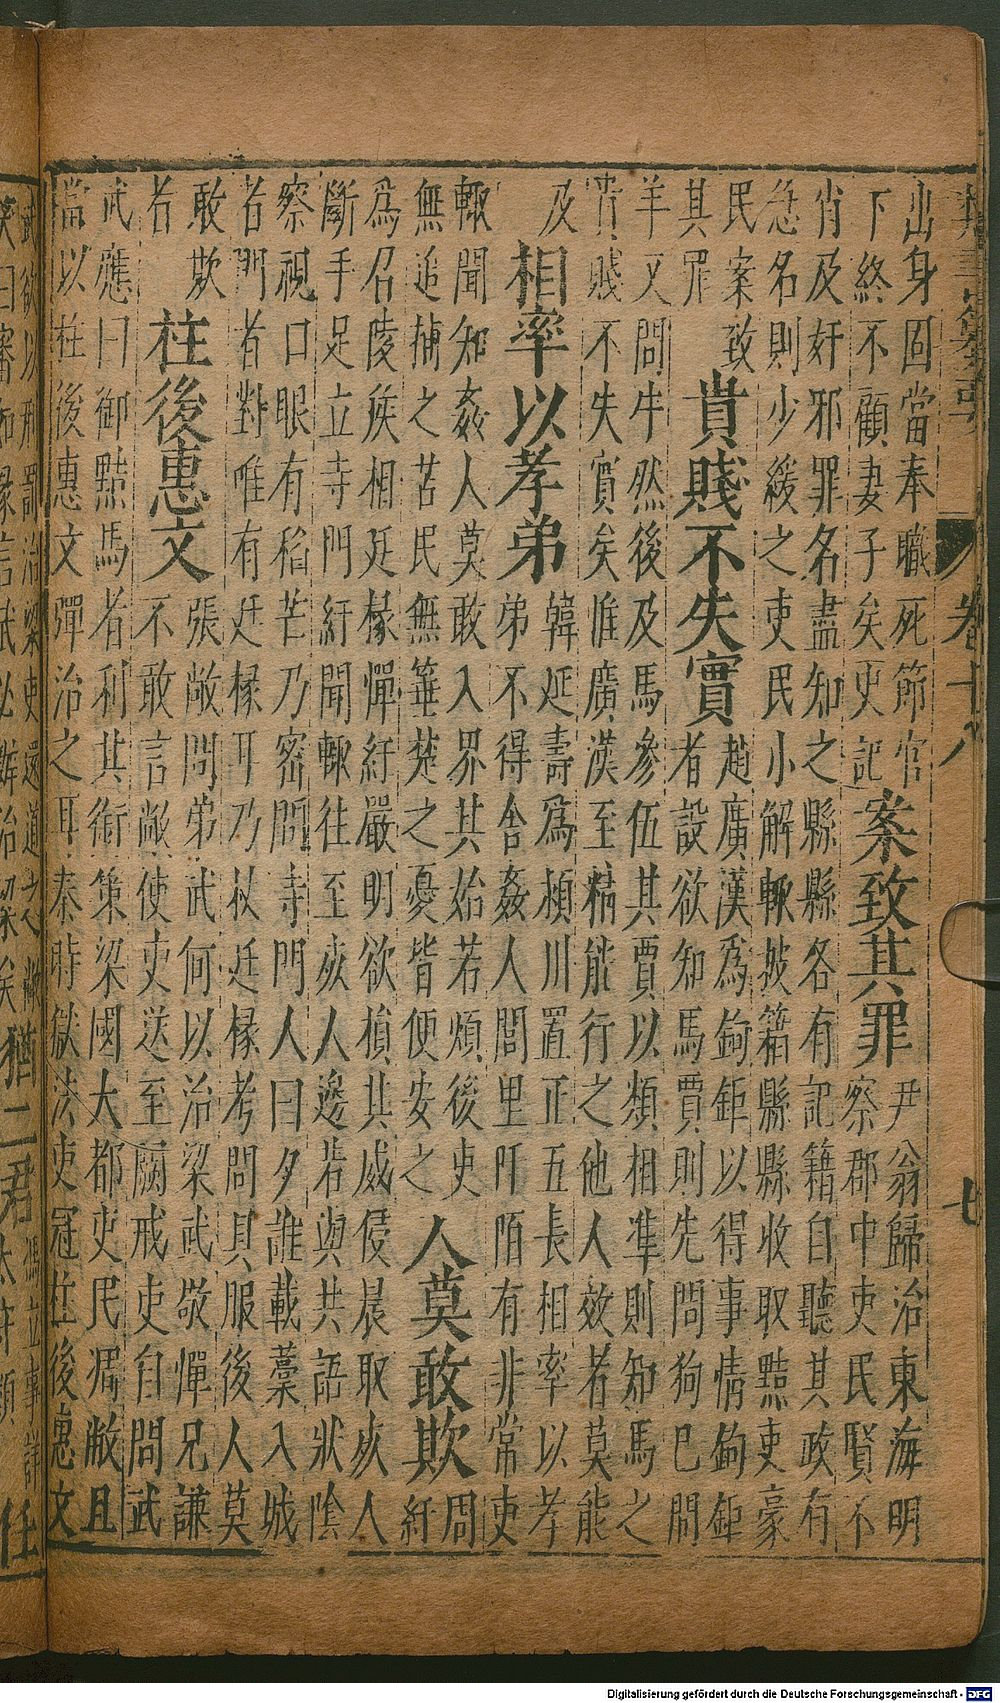 卷十八 七
出身固當奉職死節官
下終不顧妻子矣史記
案致其罪
尹翁歸治東海明
察郡中吏民賢不
肖及奸邪罪名盡知之縣縣各有記籍自聽其政有
急名則少緩之吏民小解輒披籍縣縣收取黠吏豪
民案致
其罪
貴賤不失實
趙廣漢為鉤鉅以得事情鉤鉅
者設欲知馬賈則先問狗已問
羊又問牛然後及馬參伍其賈以類相準則知馬之
貴賤不失實矣惟廣漢至精能行之他人效者莫能
及
相率以孝弟
韓延壽為潁川置正五長相率以孝
弟不得舍姦人閭里阡陌有非常吏
輒聞知姦人莫敢入界其始若煩後吏
無追捕之苦民無箠楚之憂皆便安之
人莫敢欺
周
紆
為召陵侯相廷掾憚紆嚴明欲損其威侵晨取死人
斷手足立寺門紆聞輒往至死人邊若與共語狀陰
察視口眼有稻芒乃密問寺門人曰夕誰載藁入城
者門者對唯有廷掾耳乃收廷掾考問具服後人莫
敢欺
者
柱後惠文
張敞問弟武何以治梁武敬憚兄謙
不敢言敞使吏送至關戒吏自問武
武應曰御黠馬者利其銜策梁國大都吏民凋敝且
當以柱後惠文彈治之耳秦時獄法吏冠柱後惠文
武欲以刑罰治梁吏還道之敞
笑曰審如掾言武必辦治梁矣
猶二君
馮立事詳
太守類
任
Digitalisierung gefördert durch die Deutsche Forschungsgemeinschaft - DFG